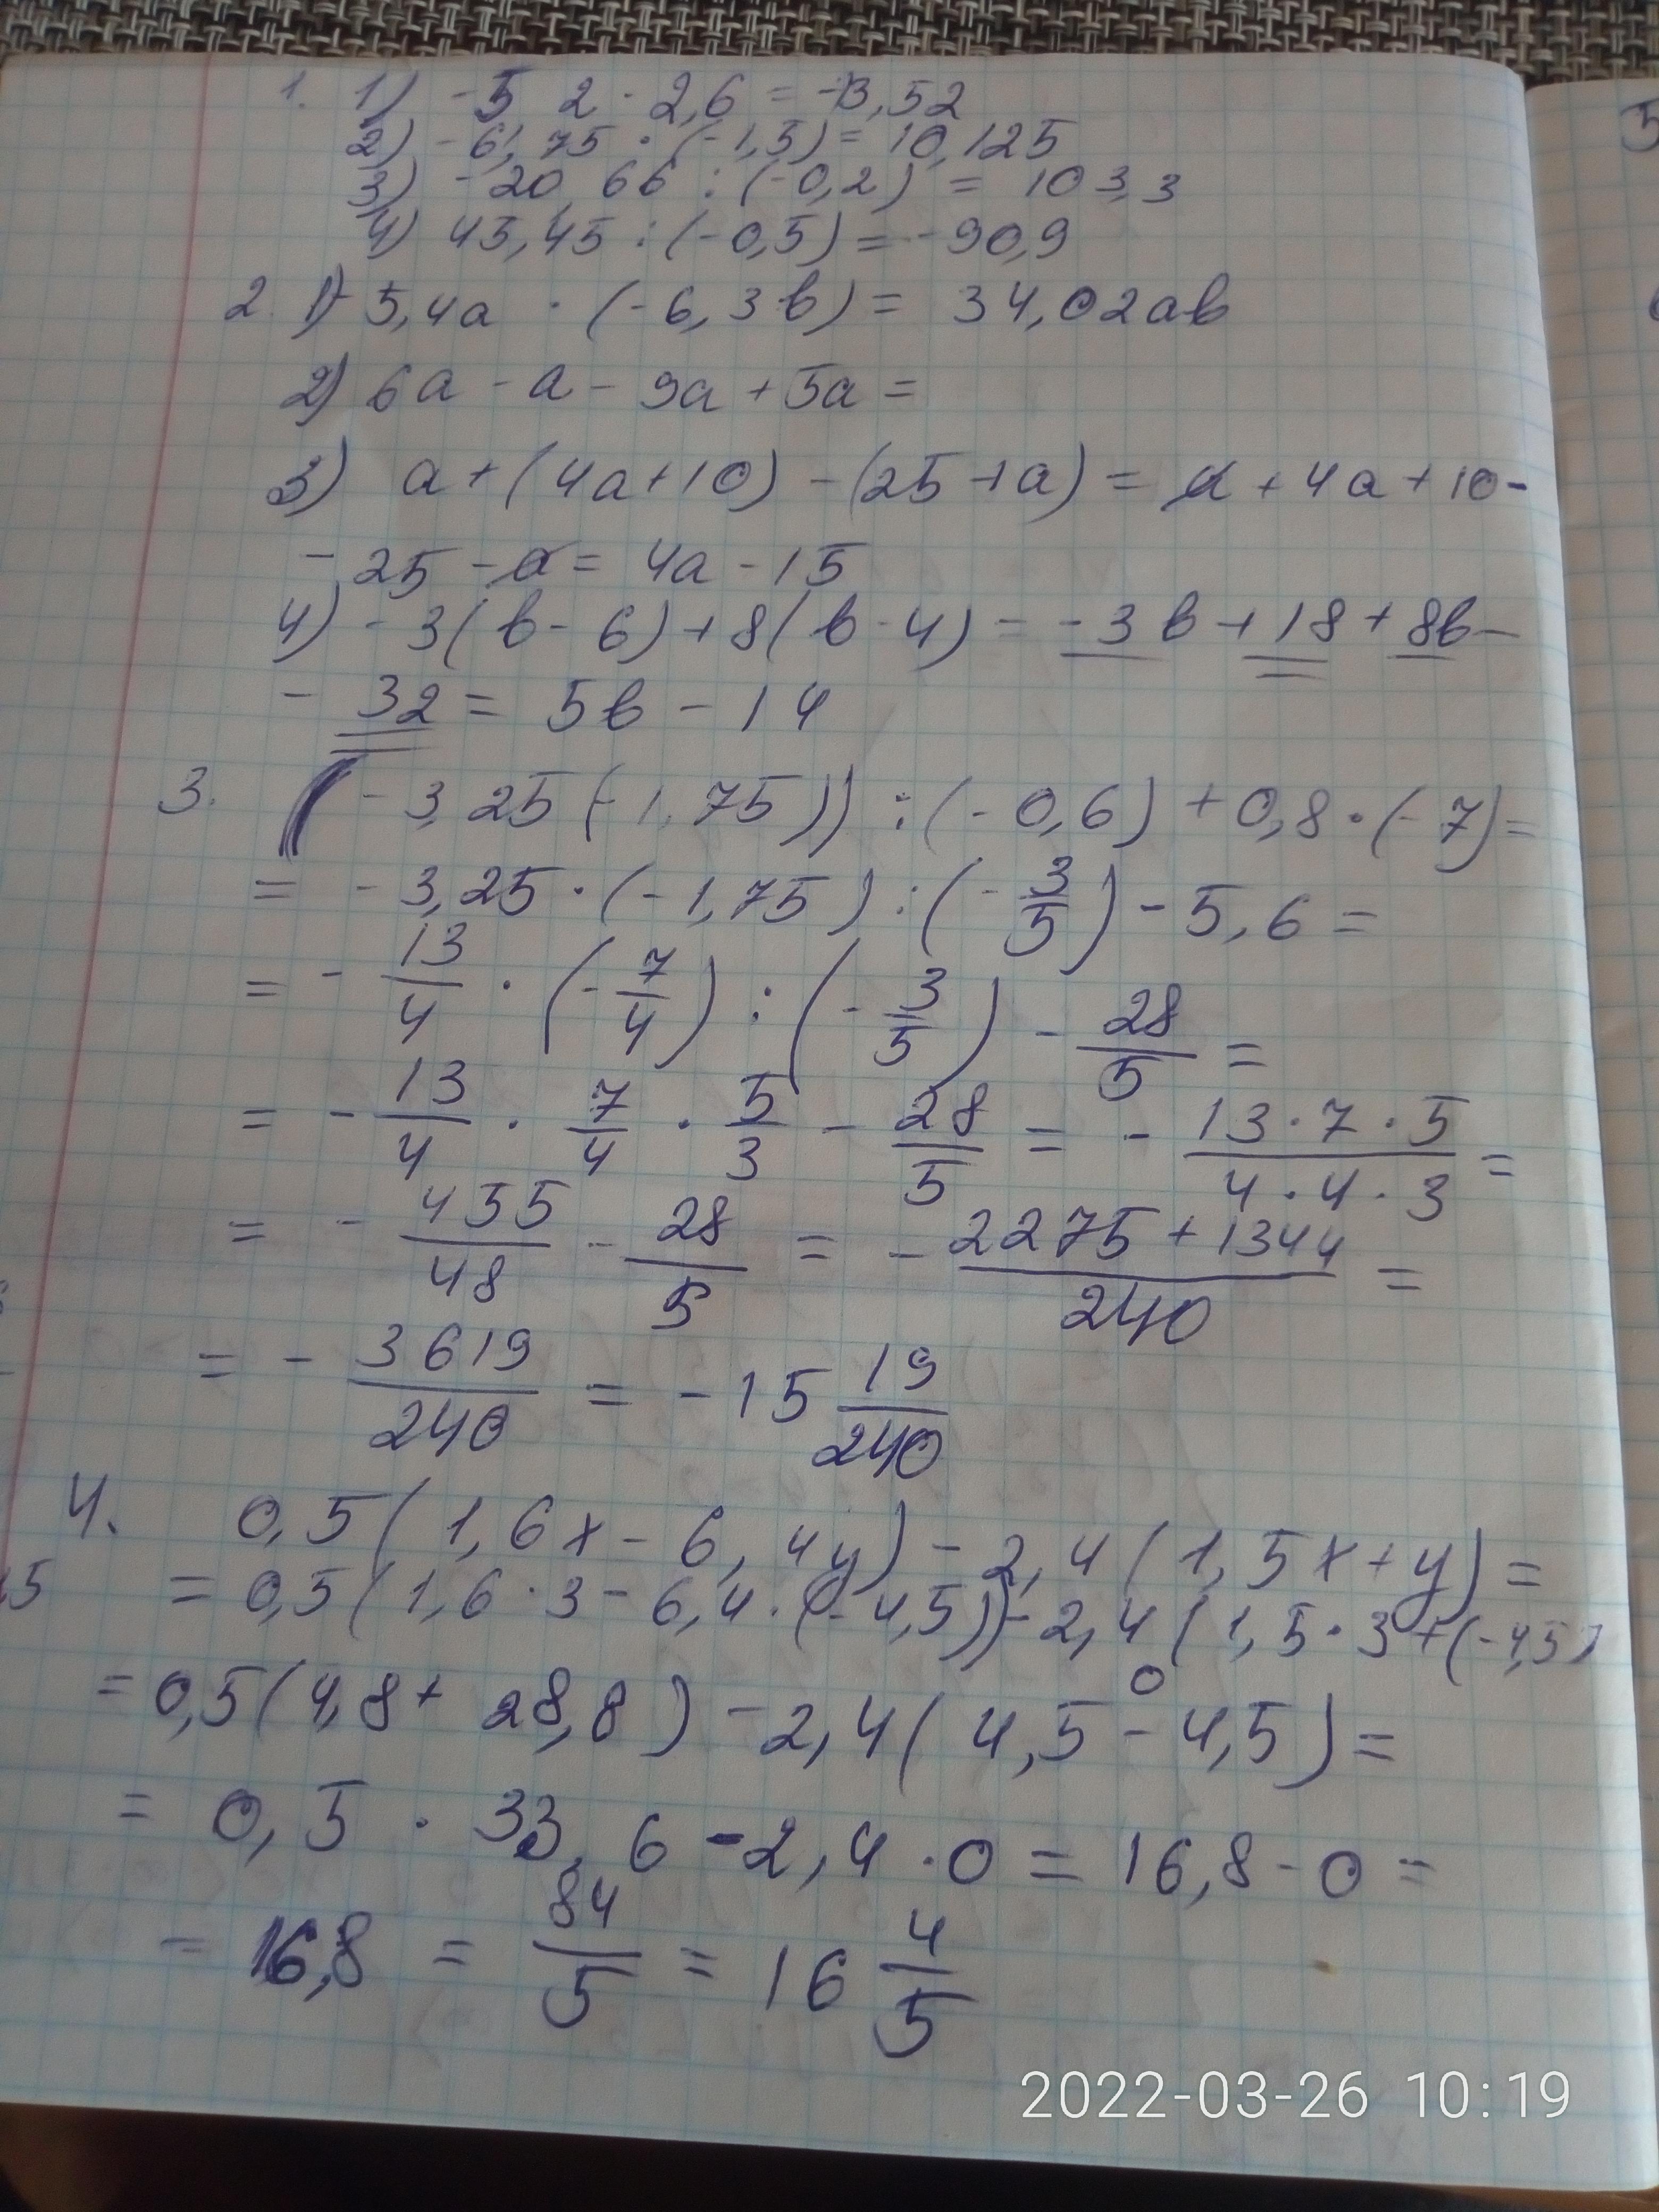 1. 1) -5,2 · 2,6 = -13,52
2) -6,75 · (-1,5) = 10,125
3) -20,66 : (-0,2) = 103,3
4) 45,45 : (-0,5) = -90,9
2. 1) -5,4a · (-6,3b) = 34,02ab
2) 6a - a - 9a + 5a =
3) a + (4a + 10) - (25 + a) = a + 4a + 10 -
- 25 - a = 4a - 15
4) -3(b - 6) + 8(b - 4) = -3b + 18 + 8b -
- 32 = 5b - 14
3. (-3,25(-1,75)) : (-0,6) + 0,8 · (-7) =
= -3,25 · (-1,75) : (-3/5) - 5,6 =
= -13/4 · (-7/4) : (-3/5) - 28/5 =
= -13/4 · 7/4 · 5/3 - 28/5 = -13·7·5/4·4·3 =
= -455/48 - 28/5 = -2275+1344/240 =
= -3619/240 = -15 19/240
4. 0,5(1,6x - 6,4y) - 2,4(1,5x + y) =
= 0,5(1,6 · 3 - 6,4 · (-4,5)) - 2,4(1,5 · 3 + (-4,5)
0
= 0,5(4,8 + 28,8) - 2,4(4,5 - 4,5) =
= 0,5 · 33,6 - 2,4 · 0 = 16,8 - 0 =
= 16,8 = 84/5 = 16 4/5
2022-03-26 10:19